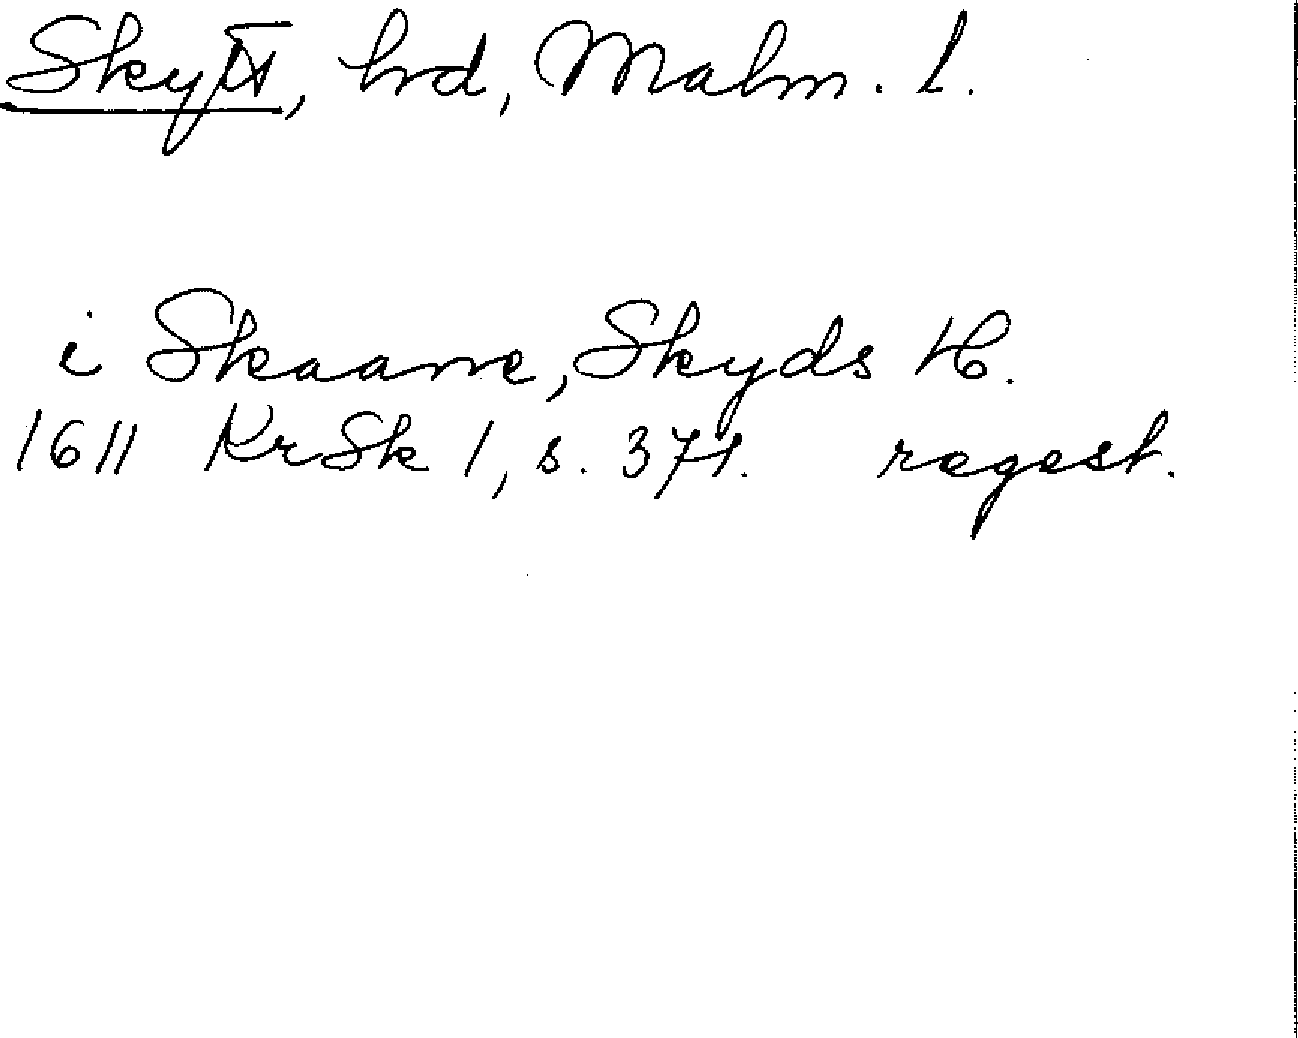 Skytt, hrd, Malm. l.
i Skaane, Skyds H.
1611 KrSk 1, s. 371. regest.